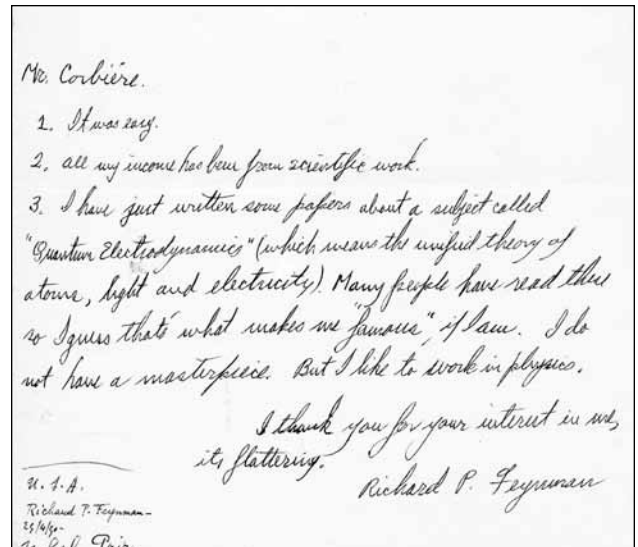 Mr. Corbiére.
1. It was easy.
2. all my income has been from scientific work.
3. I have just written some papers about a subject called
"Quantum Electrodynamics" (which means the unified theory of
atoms, light and electricity). Many people have read these
so I guess that's what makes me "famous", if I am. I do
not have a masterpiece. But I like to work in physics.
I thank you for your interest in me,
its flattering.
Richard P. Feynman
U.S.A.
Richard P. Feynman-